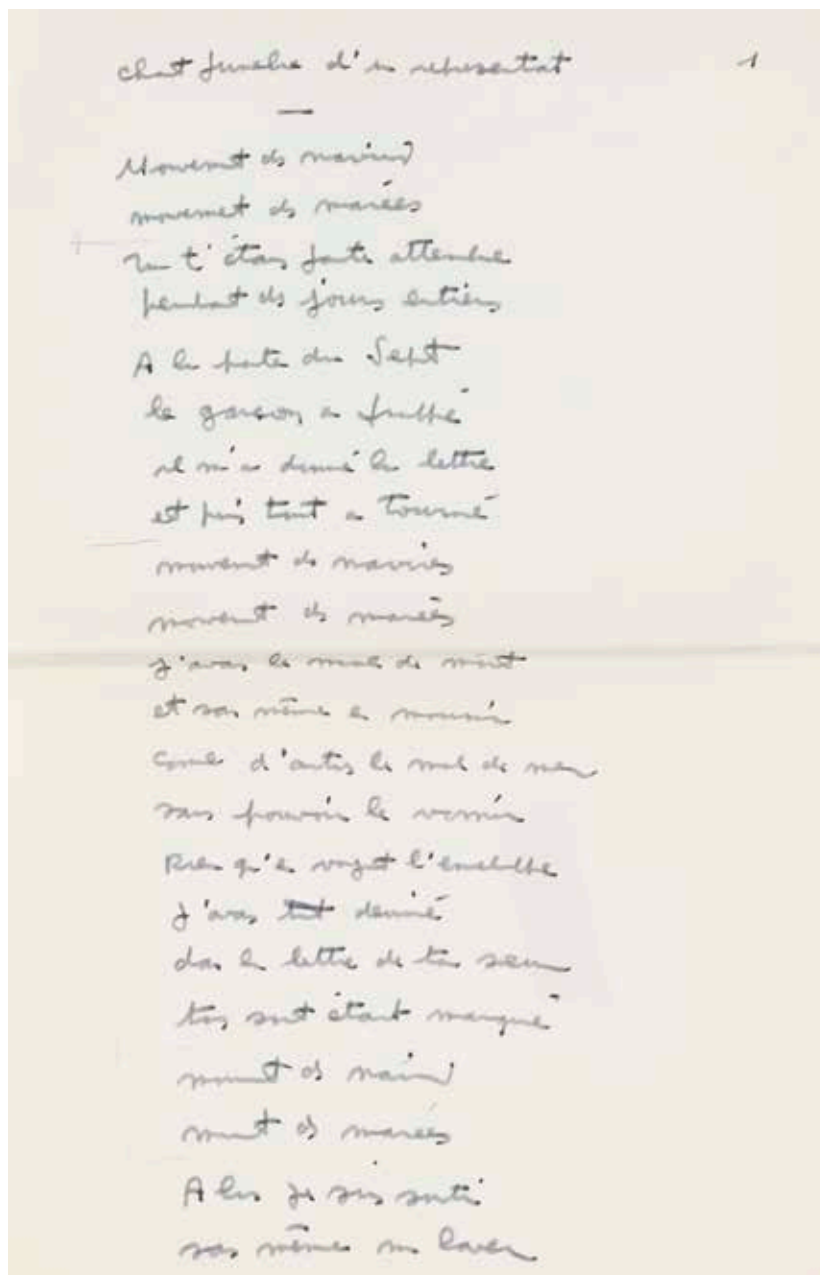 Chant funèbre d'un représentant
1
Mouvement des navires
mouvement des marées
Tu t'étais faite attendre
pendant des jours entiers
A la porte du Sept
le garçon a frappé
il m'a donné la lettre
et puis tout a tourné
mouvement des navires
mouvement des marées
j'avais le mal de mort
et sans même en mourir
comme d'autres le mal de mer
sans pouvoir le vomir
Rien qu'en voyant l'enveloppe
j'avais tout deviné
dans la lettre de ta sœur
ton sort était marqué
mouvement des navires
mouvement des marées
Alors je suis sorti
sans même me laver